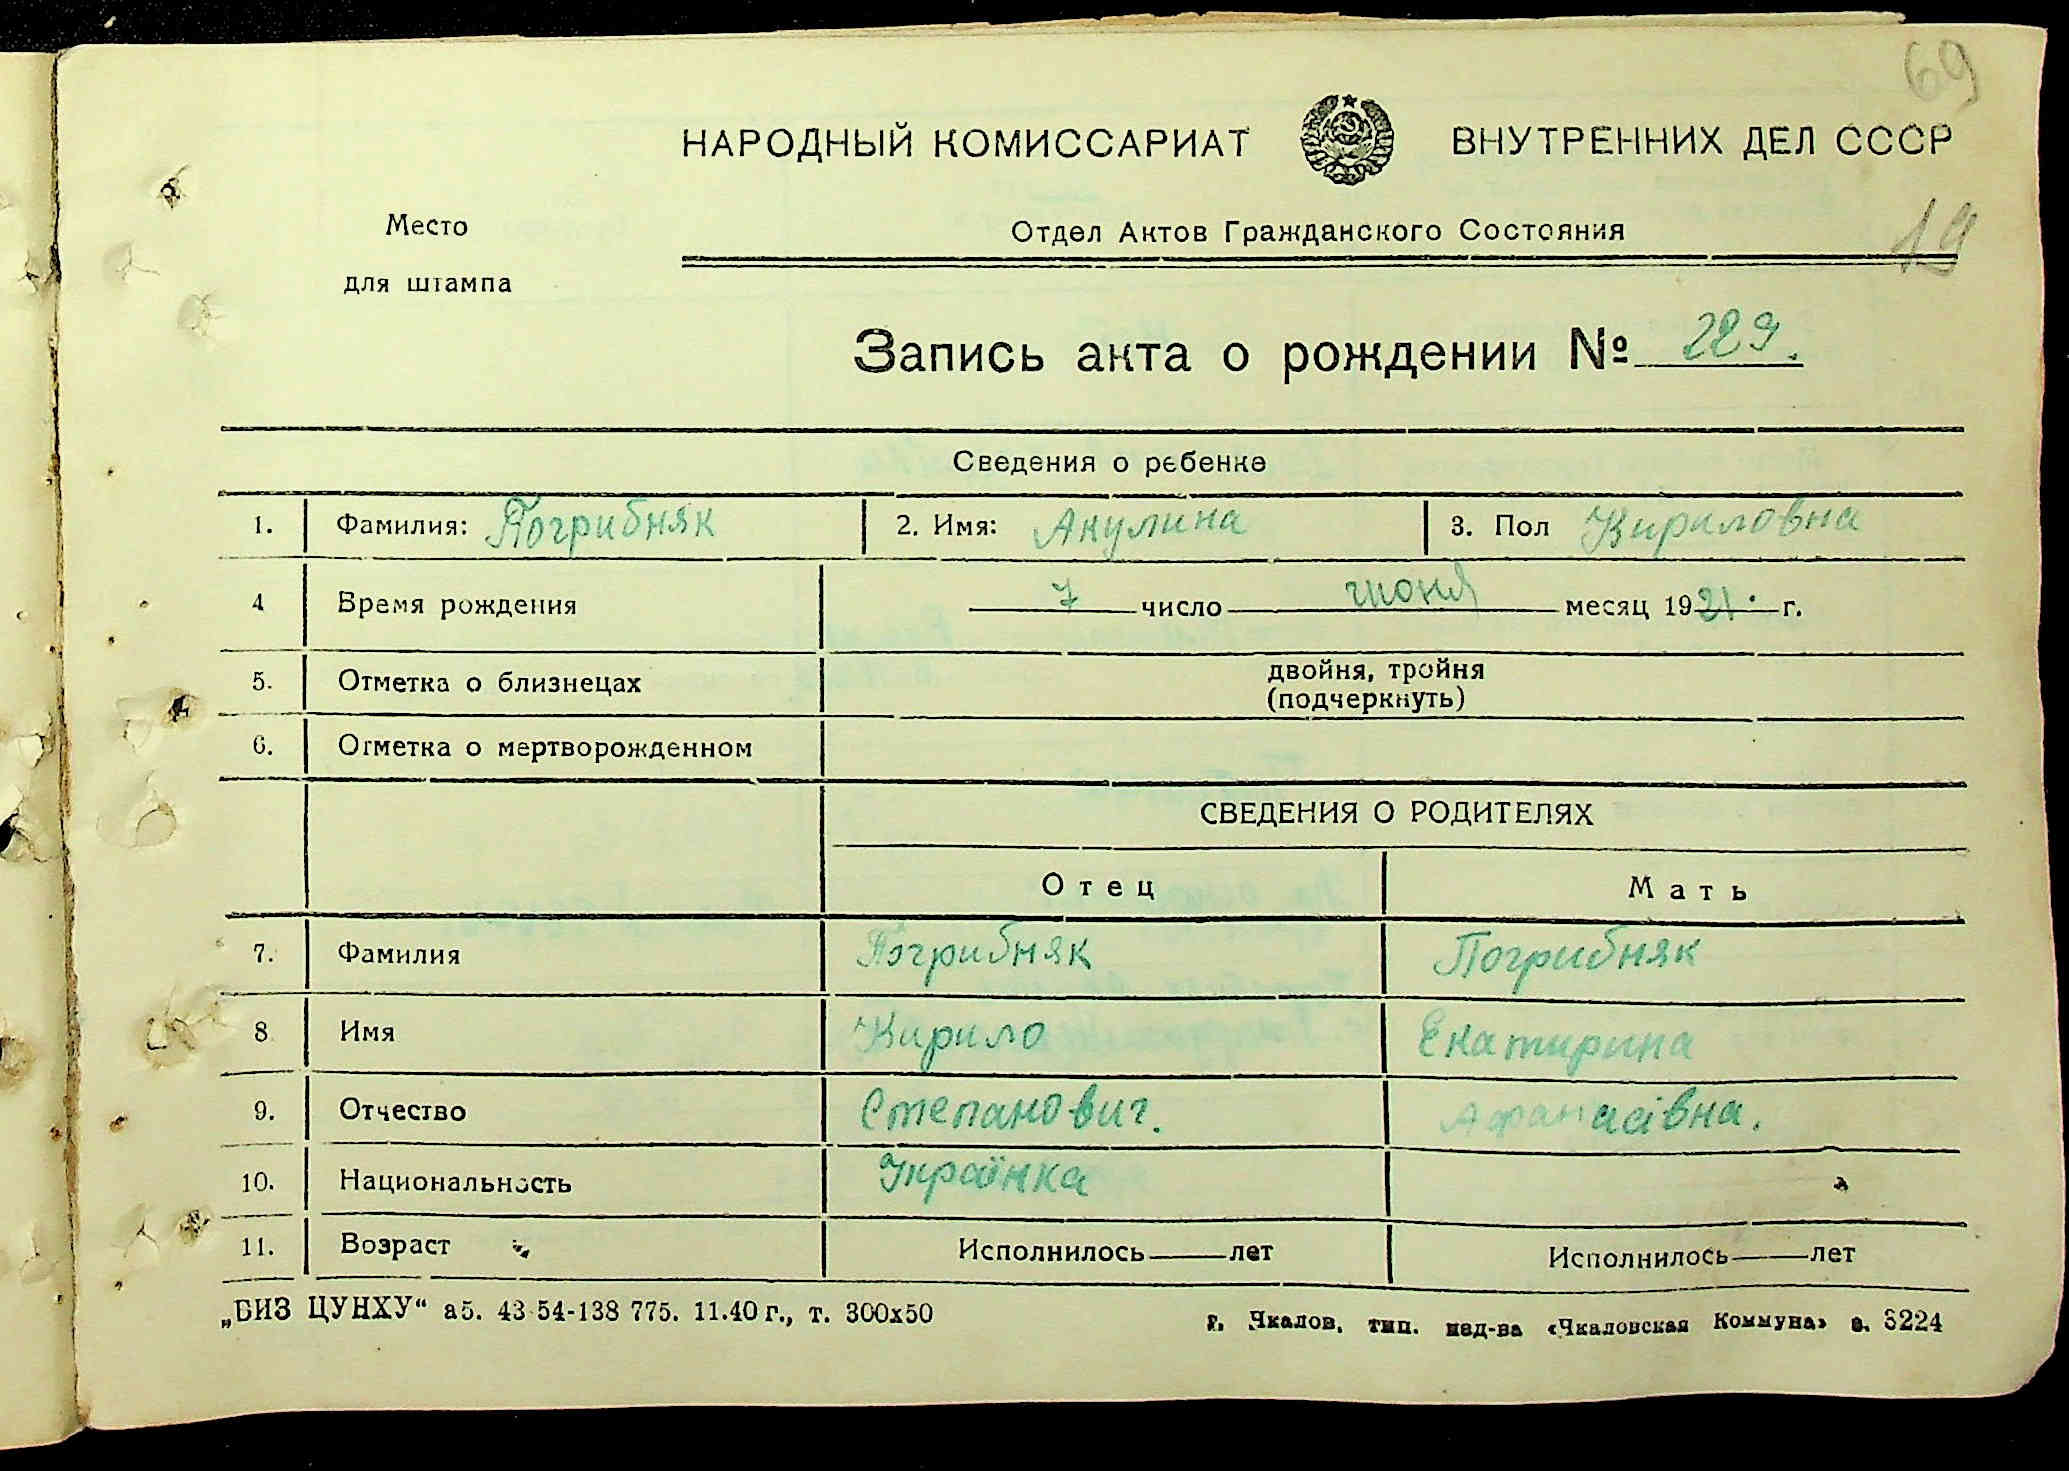 69
НАРОДНЫЙ КОМИССАРИАТ ВНУТРЕННИХ ДЕЛ СССР
19
Место
для штампа
Отдел Актов Гражданского Состояния
Запись акта о рождении № 289.
Сведения о ребенке
1. Фамилия: Погрибняк 2. Имя: Акулина 3. Пол Кириловна
4 Время рождения 7 число июня месяц 1921 г.
5. Отметка о близнецах двойня, тройня
(подчеркнуть)
6. Отметка о мертворожденном
СВЕДЕНИЯ О РОДИТЕЛЯХ
Отец Мать
7. Фамилия Погрибняк Погрибняк
8 Имя Кирило Екатирина
9. Отчество Степанович. Афанасівна.
10. Национальность Українка
11. Возраст Исполнилось лет Исполнилось лет
„БИЗ ЦУНХУ“ а5. 43-54-138 775. 11.40 г., т. 300х50 г. Чкалов, тип. изд-ва «Чкаловская Коммуна» з. 3224